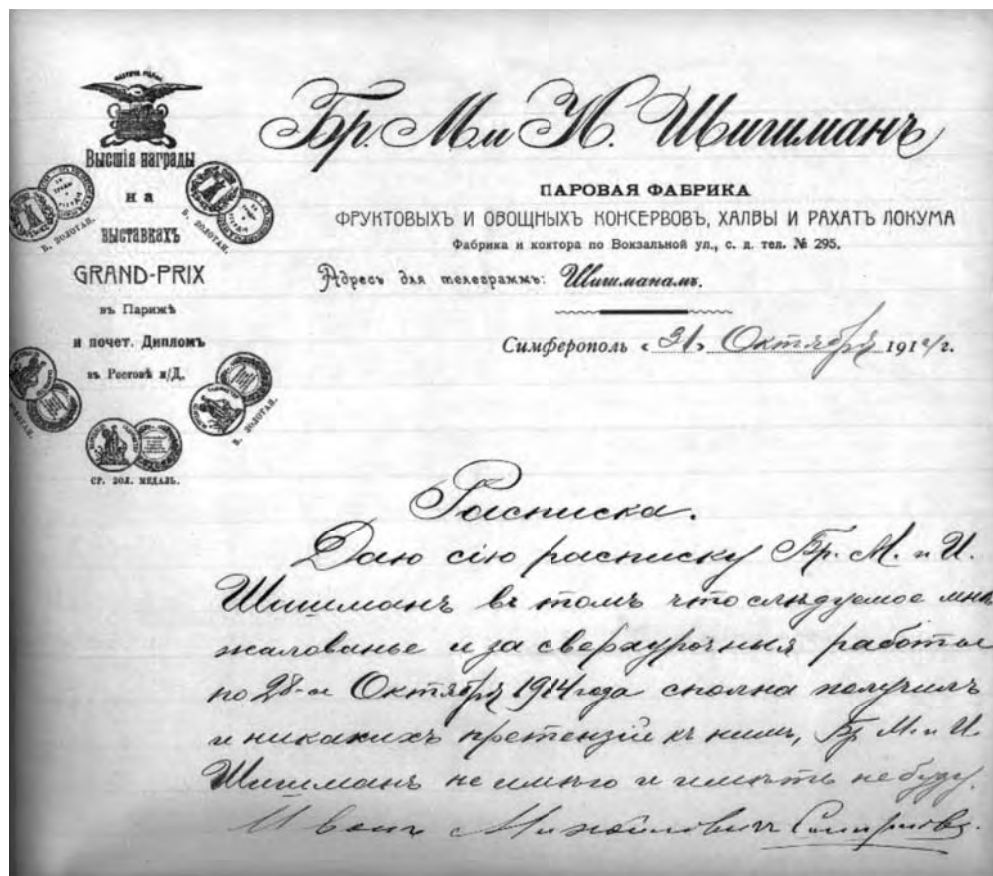 Высшія награды
на
выставкахъ
GRAND-PRIX
въ Парижѣ
и почет. Дипломъ
въ Ростовѣ н/Д.
Б. ЗОЛОТАЯ.
Б. ЗОЛОТАЯ.
ЗОЛОТАЯ.
Б. ЗОЛОТАЯ.
СР. ЗОЛ. МЕДАЛЬ.
Бр. М. и И. Шишманъ
ПАРОВАЯ ФАБРИКА
ФРУКТОВЫХЪ И ОВОЩНЫХЪ КОНСЕРВОВЪ, ХАЛВЫ И РАХАТЪ ЛОКУМА
Фабрика и контора по Вокзальной ул., с. д. тел. № 295.
Адресъ для телеграммъ: Шишманамъ.
Симферополь «31» Октября 1914 г.
Расписка.
Даю сію расписку Бр. М. и И.
Шишманъ въ томъ что слѣдуемое мнѣ
жалованье и за сверхурочныя работы
по 28-е Октября 1914 года сполна получилъ
и никакихъ претензій къ нимъ, Бр. М. и И.
Шишманъ не имѣю и имѣть не буду.
Иванъ Михайловичъ Смирновъ.